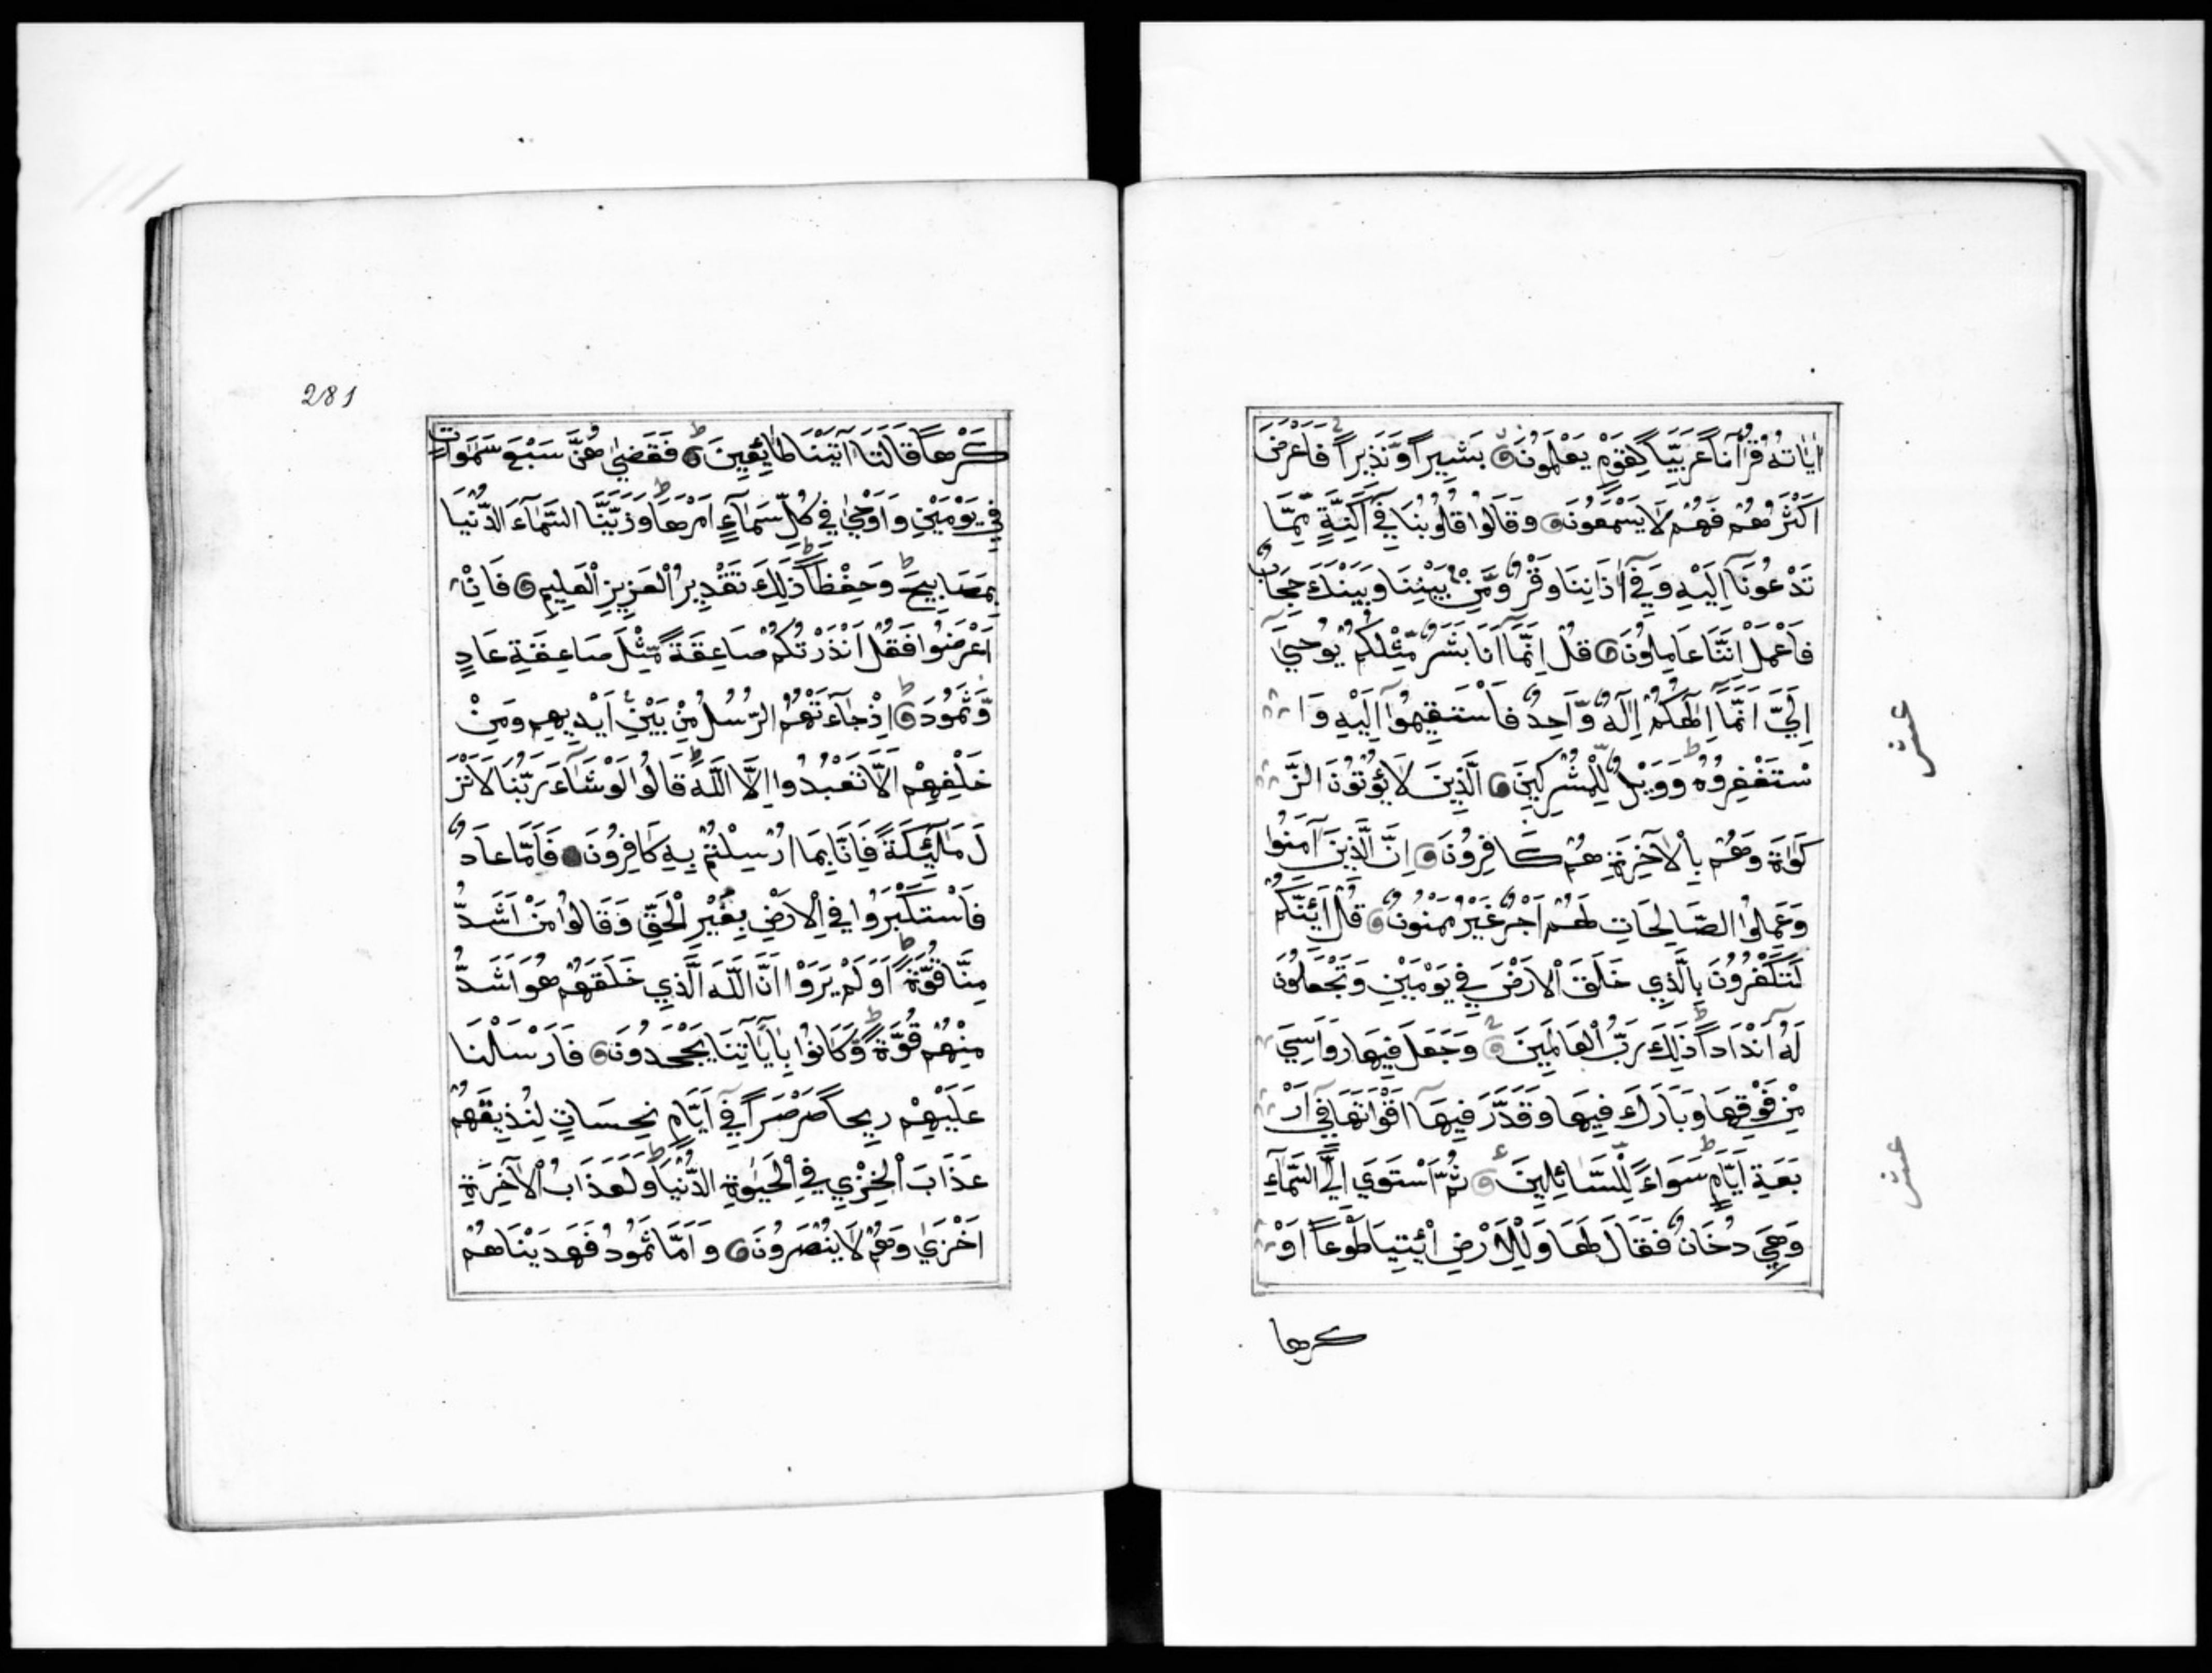 اٰيَاتُهُ قُرْاٰنًا عَرَبِيًّا لِقَوْمٍ يَعْلَمُونَ بَشِيراً وَّنَذِيراً فَاَعْرَضَ
اَكْثَرُهُمْ فَهُمْ لَا يَسْمَعُونَ وَقَالُوا قُلُوبُنَا فِي اَكِنَّةٍ مِمَّا
تَدْعُونَا اِلَيْهِ وَفِي اٰذَانِنَا وَقْرٌ وَّمِنْ بَيْنِنَا وَبَيْنَكَ حِجَابٌ
فَاعْمَلْ اِنَّنَا عَامِلُونَ قُلْ اِنَّمَا اَنَا بَشَرٌ مِّثْلُكُمْ يُوحٰى
اِلَيَّ اَنَّمَا اِلٰهُكُمْ اِلٰهٌ وَّاحِدٌ فَاسْتَقِيمُوا اِلَيْهِ وَا
سْتَغْفِرُوهُ وَوَيْلٌ لِّلْمُشْرِكِينَ اَلَّذِينَ لَا يُؤْتُونَ الزَّ
كَوٰةَ وَهُمْ بِالْآخِرَةِ هُمْ كَافِرُونَ اِنَّ الَّذِينَ آمَنُوا
وَعَمِلُوا الصَّالِحَاتِ لَهُمْ اَجْرٌ غَيْرُ مَمْنُونٍ قُلْ اَئِنَّكُمْ
لَتَكْفُرُونَ بِالَّذِي خَلَقَ الْاَرْضَ فِي يَوْمَيْنِ وَتَجْعَلُونَ
لَهُ اَنْدَاداً ذٰلِكَ رَبُّ الْعَالَمِينَ وَجَعَلَ فِيهَا رَوَاسِيَ
مِنْ فَوْقِهَا وَبَارَكَ فِيهَا وَقَدَّرَ فِيهَا اَقْوَاتَهَا فِي اَرْ
بَعَةِ اَيَّامٍ سَوَاءً لِّلسَّائِلِينَ ثُمَّ اسْتَوٰى اِلَى السَّمَآءِ
وَهِيَ دُخَانٌ فَقَالَ لَهَا وَلِلْاَرْضِ ائْتِيَا طَوْعاً اَوْ
كرها
عشر
عشر
281
كَرْهاً قَالَتَا اَتَيْنَا طَائِعِينَ فَقَضٰيهُنَّ سَبْعَ سَمٰوَاتٍ
فِي يَوْمَيْنِ وَاَوْحٰى فِي كُلِّ سَمَآءٍ اَمْرَهَا وَزَيَّنَّا السَّمَآءَ الدُّنْيَا
بِمَصَابِيحَ وَحِفْظاً ذٰلِكَ تَقْدِيرُ الْعَزِيزِ الْعَلِيمِ فَاِنْ
اَعْرَضُوا فَقُلْ اَنْذَرْتُكُمْ صَاعِقَةً مِّثْلَ صَاعِقَةِ عَادٍ
وَّثَمُودَ اِذْ جَآءَتْهُمُ الرُّسُلُ مِنْ بَيْنِ اَيْدِيهِمْ وَمِنْ
خَلْفِهِمْ اَلَّا تَعْبُدُوا اِلَّا اللّٰهَ قَالُوا لَوْ شَآءَ رَبُّنَا لَاَنْزَ
لَ مَلٰئِكَةً فَاِنَّا بِمَا اُرْسِلْتُمْ بِهِ كَافِرُونَ فَاَمَّا عَادٌ
فَاسْتَكْبَرُوا فِي الْاَرْضِ بِغَيْرِ الْحَقِّ وَقَالُوا مَنْ اَشَدُّ
مِنَّا قُوَّةً اَوَلَمْ يَرَوْا اَنَّ اللّٰهَ الَّذِي خَلَقَهُمْ هُوَ اَشَدُّ
مِنْهُمْ قُوَّةً وَّكَانُوا بِاٰيَاتِنَا يَجْحَدُونَ فَاَرْسَلْنَا
عَلَيْهِمْ رِيحاً صَرْصَراً فِي اَيَّامٍ نَحِسَاتٍ لِنُذِيقَهُمْ
عَذَابَ الْخِزْيِ فِي الْحَيٰوةِ الدُّنْيَا وَلَعَذَابُ الْآخِرَةِ
اَخْزٰى وَهُمْ لَا يُنْصَرُونَ وَاَمَّا ثَمُودُ فَهَدَيْنَاهُمْ